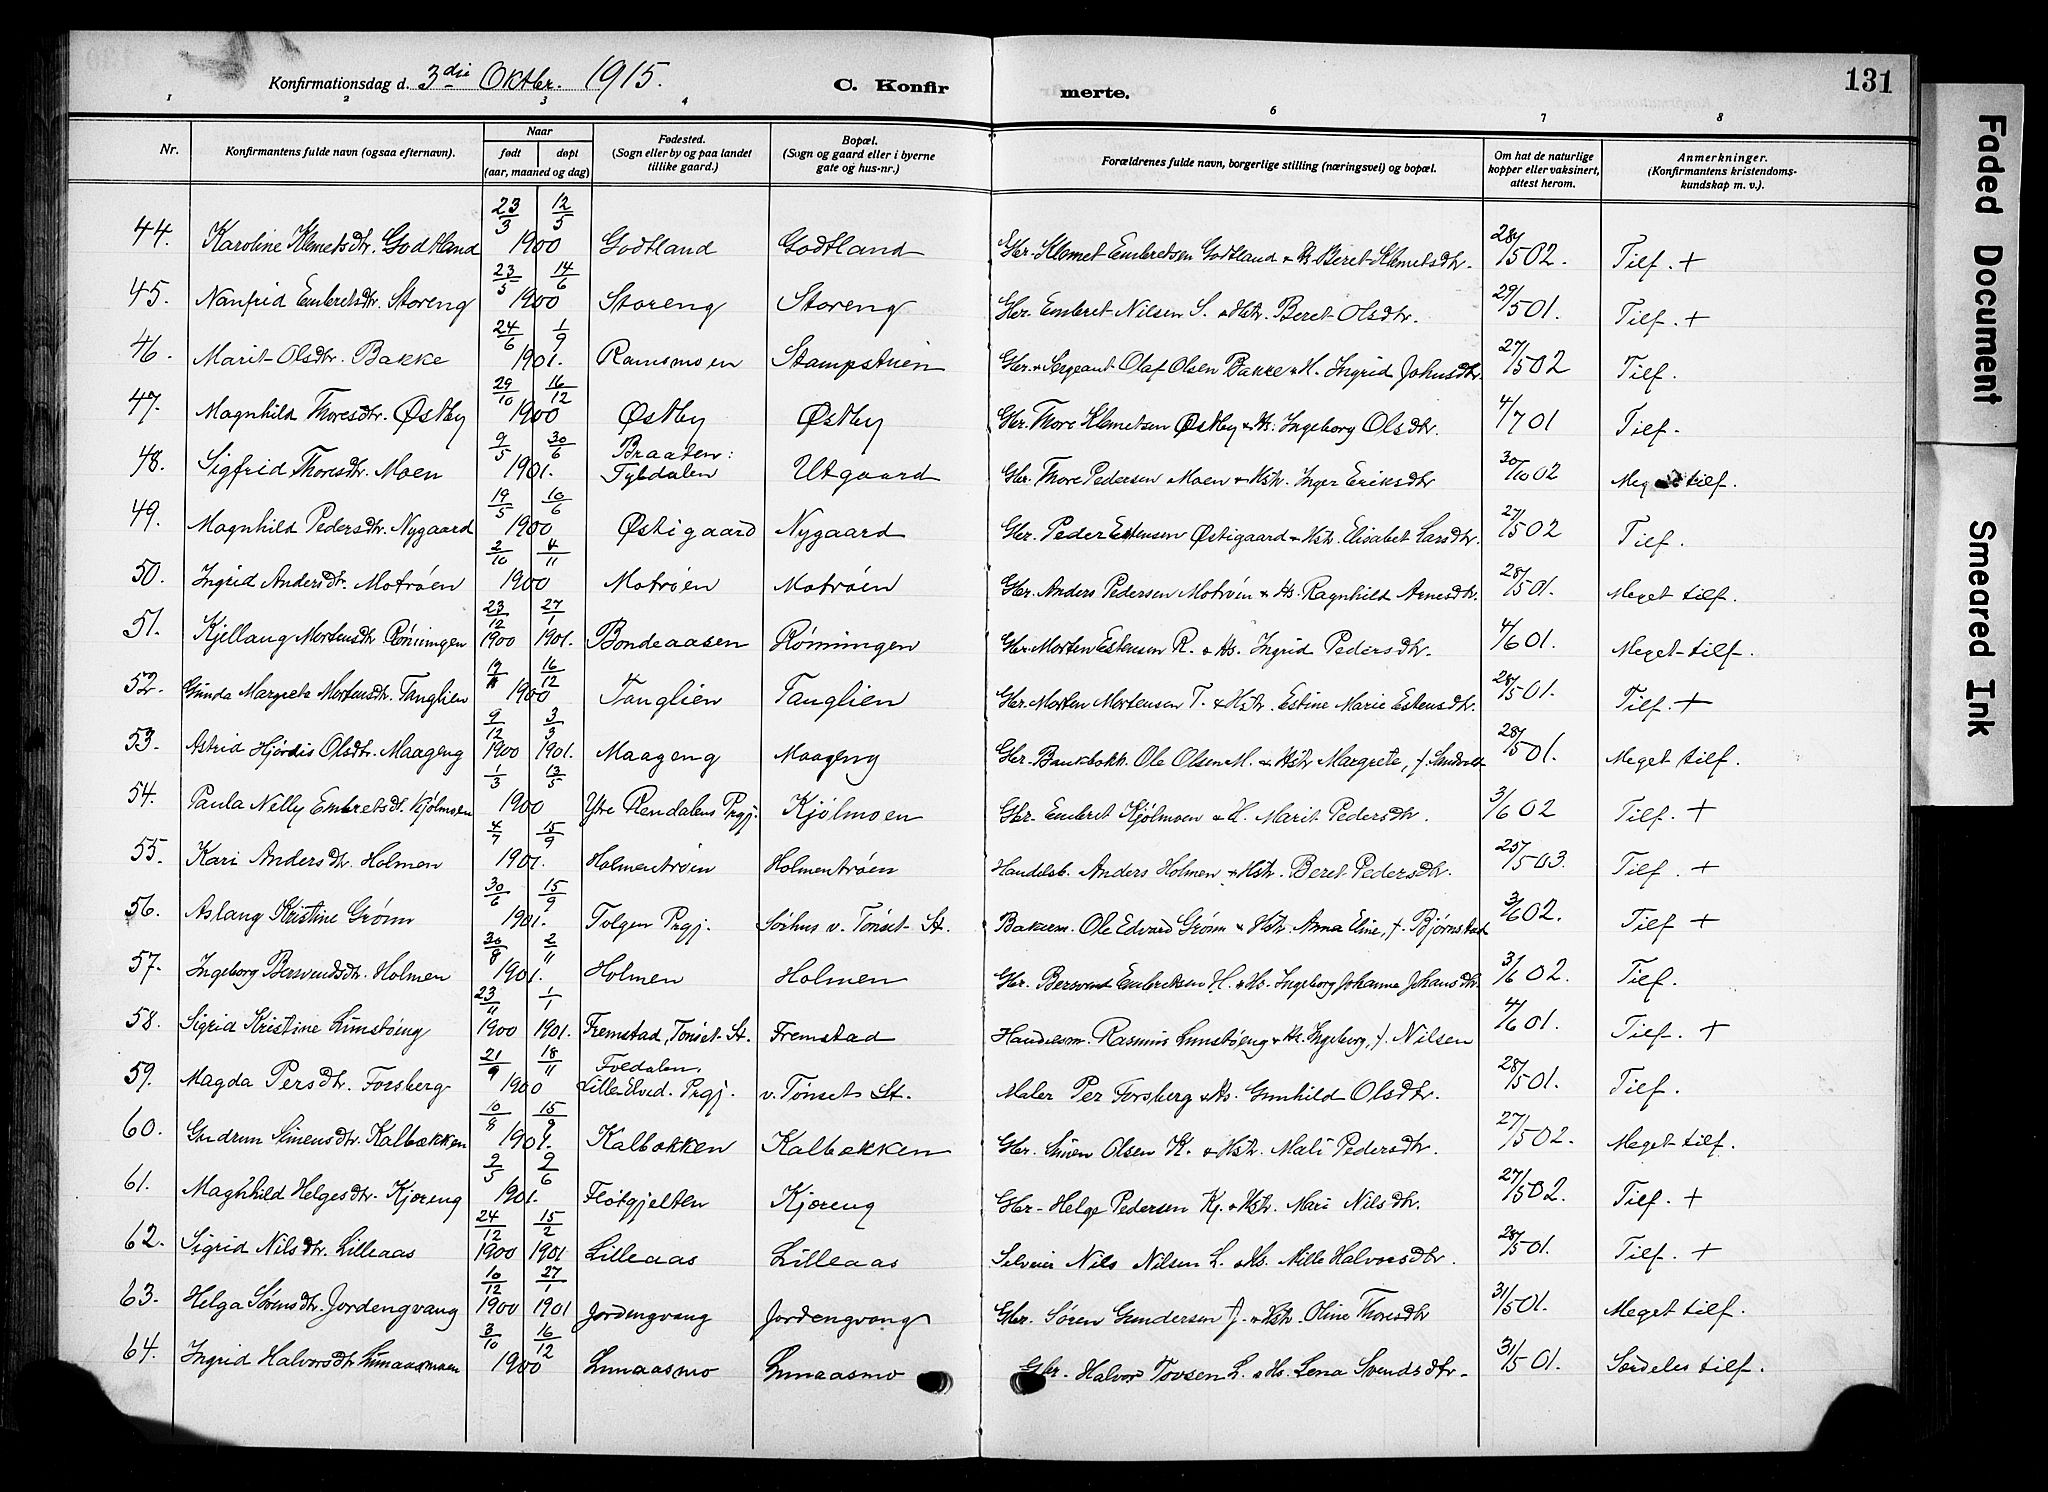 Konfirmationsdag d. 3die Oktbr. 1915. C. Konfirmerte. 131
1 2 3 4 5 6 7 8
Nr. Konfirmantens fulde navn (ogsaa efternavn). Naar født døpt (aar, maaned og dag) Fødested. (Sogn eller by og paa landet tillike gaard.) Bopæl. (Sogn og gaard eller i byerne gate og hus-nr.) Forældrenes fulde navn, borgerlige stilling (næringsvei) og bopæl. Om hat de naturlige kopper eller vaksinert, attest herom. Anmerkninger. (Konfirmantens kristendomskundskap m. v.).
44. Karoline Klemetsdtr. Godtland 23/3 12/5 1900 Godtland Godtland Gbr. Klemet Embretsen Godtland & Hs. Beret Klemetsdtr. 28/5 02. Tilf. +
45. Nanfrid Embretsdtr. Storeng 23/5 14/6 1900 Storeng Storeng Gbr. Embret Nilsen S. & Hstr. Beret Olsdtr. 29/5 01. Tilf. +
46. Marit Olsdtr. Bakke 24/6 1/9 1901. Ramsmoen Stampstuen Gbr. & Sergeant Olaf Olsen Bakke & H. Ingrid Johnsdtr. 27/5 02 Tilf.
47. Magnhild Thoresdtr. Østby 29/10 16/12 1900 Østby Østby Gbr. Thore Klemetsen Østby & Hs. Ingeborg Olsdtr. 4/7 01 Tilf.
48. Sigfrid Thoresdtr. Moen 9/5 30/6 1901. Braaten: Tyldalen Utgaard Gbr. Thore Pedersen Moen & Hstr. Inger Eriksdtr 30/10 02 Meget tilf.
49. Magnhild Pedersdtr. Nygaard 19/5 10/6 1900 Østigaard Nygaard Gbr. Peder Estensen Østigaard & Hstr. Elisabet Larsdtr. 27/5 02 Tilf.
50. Ingrid Andersdtr. Motrøen 2/10 4/11 1900 Motrøen Motrøen Gbr. Anders Pedersen Motrøen & Hs. Ragnhild Arnesdtr. 28/5 01. Meget tilf.
51. Kjellaug Mortensdtr Rønningen 23/12 1900 27/1 1901. Bondeaasen Rønningen Gbr. Morten Estensen R. & Hs. Ingrid Pedersdtr. 4/6 01. Meget tilf.
52. Gunda Margrete Mortensdtr. Tanglien 19/11 16/12 1900 Tanglien Tanglien Gbr. Morten Mortensen T. & Hstr. Estine Marie Estensdtr. 28/5 01. Tilf. +
53. Astrid Hjørdis Olsdtr. Maageng 9/12 1900 3/3 1901. Maageng Maageng Gbr. Bankbokh. Ole Olsen M. & Hstr Margrete, f. 28/5 01. Meget tilf.
54. Paula Nelly Embretsdt. Kjølmoen 1/3 13/5 1900 Ytre Rendalens Prgj. Kjølmoen Gbr. Embret Kjølmoen & H. Marit Pedersdtr. 3/6 02 Tilf. +
55. Kari Andersdtr. Holmen 4/7 15/9 1901. Holmentrøen Holmentrøen Handelsb. Anders Holmen & Hstr. Beret Pedersdtr. 25/5 03. Tilf. +
56. Aslaug Kristine Grønn 30/6 15/9 1901. Tolgen Prgj. Sørhus v. Tønset St. Bakerm. Ole Edvard Grønn & Hstr. Anna Eline, f. Bjørnstad 3/6 02. Tilf. +
57. Ingeborg Bersvendsdtr. Holmen 30/8 2/11 1901. Holmen Holmen Gbr. Bersvend Embriksen H. & Hs. Ingeborg Johanna Johansdtr. 3/6 02. Tilf.
58. Sigrid Kristine Lunstøeng 23/11 1900 1/1 1901. Fremstad, Tønset St. Fremstad Handelsm. Rasmus Lunstøeng & Hs. Ingeborg, f. Nilsen 4/6 01. Tilf. +
59. Magda Persdtr. Forsberg 21/9 18/11 1900 Foldalen, Lille Elved. Prgj. v. Tønset St. Maler Per Forsberg & Hs. Gunhild Olsdtr. 28/5 01. Tilf.
60. Gudrun Simensdtr. Kalbækken 10/8 15/9 1901. Kalbækken Kalbækken Gbr. Simen Olsen K. & Hstr. Mali Pedersdtr. 27/5 02. Meget tilf.
61. Magnhild Helgesdtr. Kjøreng 2/5 9/6 1901. Fløtgjelten Kjøreng Gbr. Helge Pedersen Kj. & Hstr. Mari Nilsdtr. 27/5 02. Tilf. +
62. Sigrid Nilsdtr. Lilleaas 24/12 1900 15/2 1901 Lilleaas Lilleaas Selveier Nils Nilsen L. & Hs. Mille Halvorsdtr. 28/5 01. Tilf. +
63. Helga Sørensdtr. Jordengvang 10/12 1900 27/1 1901 Jordengvang Jordengvang Gbr. Søren Gundersen J. & Hstr. Oline Thoresdtr 31/5 01. Meget tilf.
64. Ingrid Halvorsdtr. Lunaasmoen 3/10 16/12 1900 Lunaasmo Lunaasmo Gbr. Halvor Tovsen L. & Hs. Lena Svendsdtr. 31/5 01. Særdeles tilf.
Faded Document
Smeared Ink